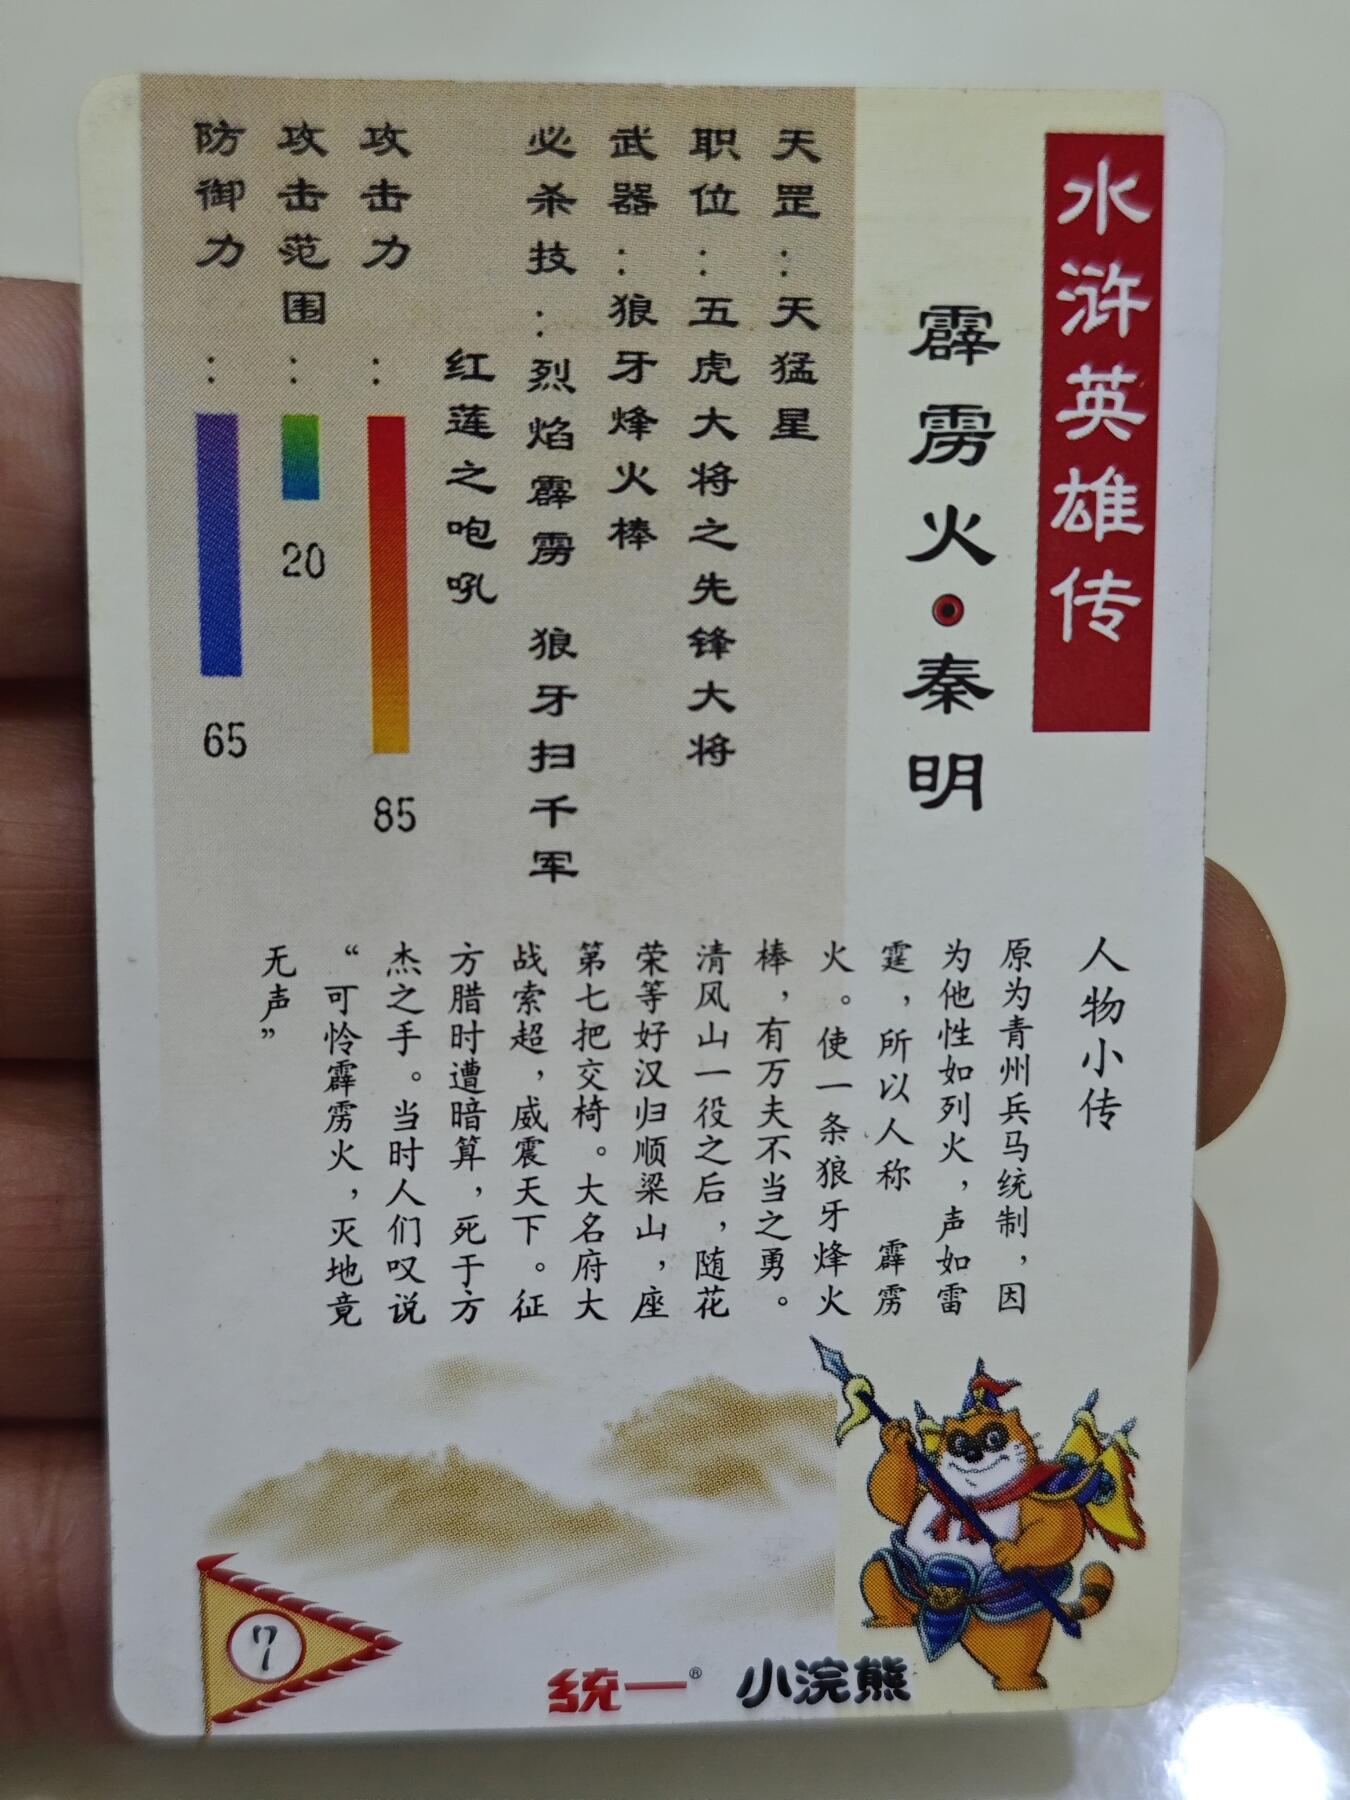 水浒英雄传
霹雳火·秦明
天罡：天猛星
职位：五虎大将之先锋大将
武器：狼牙烽火棒
必杀技：烈焰霹雳 狼牙扫千军
红莲之咆吼
攻击力：85
攻击范围：20
防御力：65
人物小传
原为青州兵马统制，因
为他性如列火，声如雷
霆，所以人称 霹雳
火。使一条狼牙烽火
棒，有万夫不当之勇。
清风山一役之后，随花
荣等好汉归顺梁山，座
第七把交椅。大名府大
战索超，威震天下。征
方腊时遭暗算，死于方
杰之手。当时人们叹说
“可怜霹雳火，灭地竟
无声”
7
统一® 小浣熊